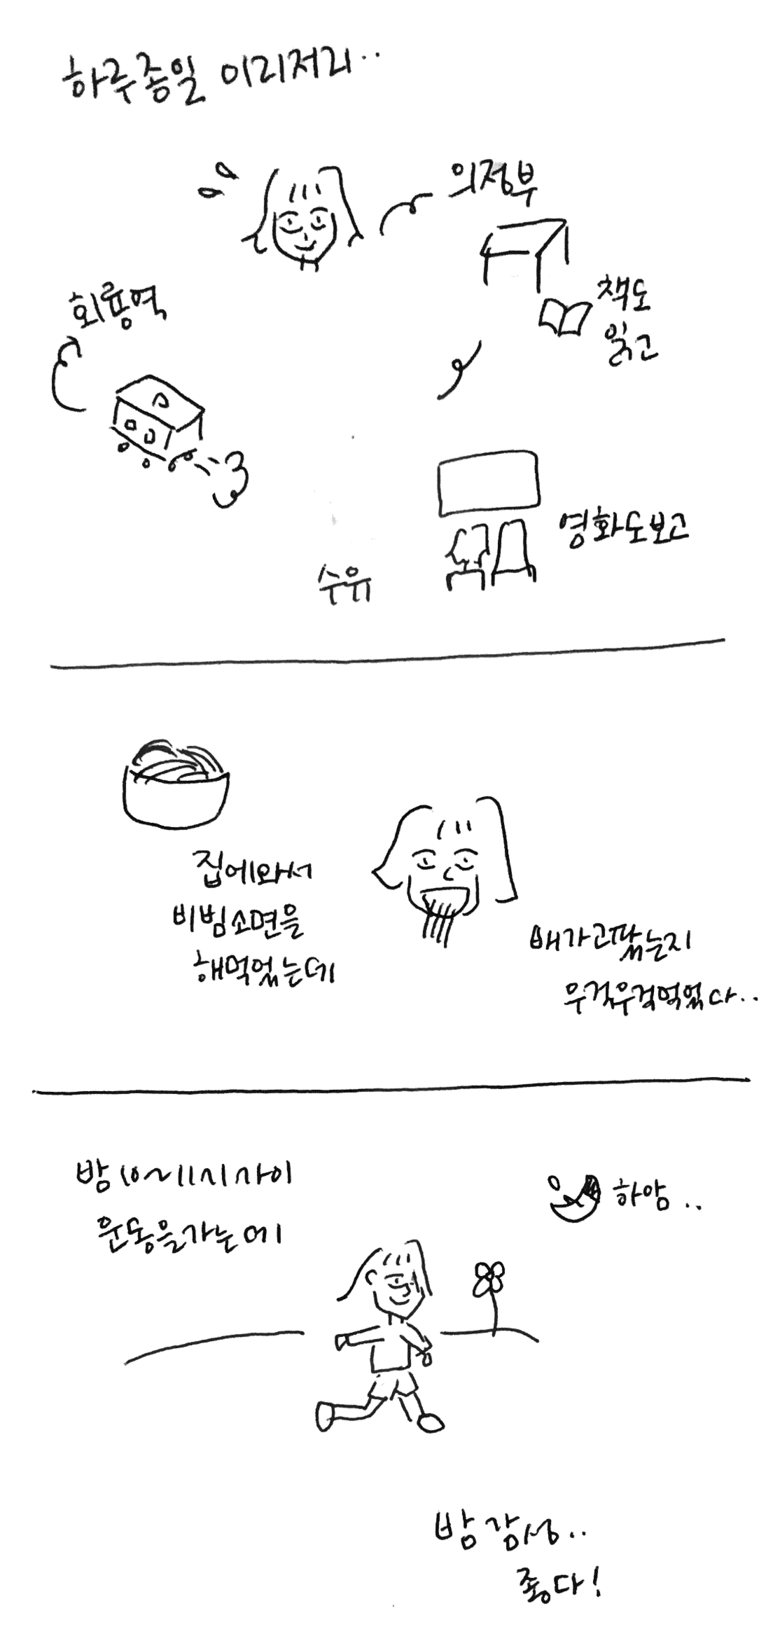 하루종일 이리저리..
의정부
책도
읽고
회룡역
영화도보고
수유
집에와서
비빔소면을
해먹었는데
배가고팠는지
우걱우걱먹었다..
밤 10~11시사이
운동을가는데
하암..
밤 감성..
좋다!